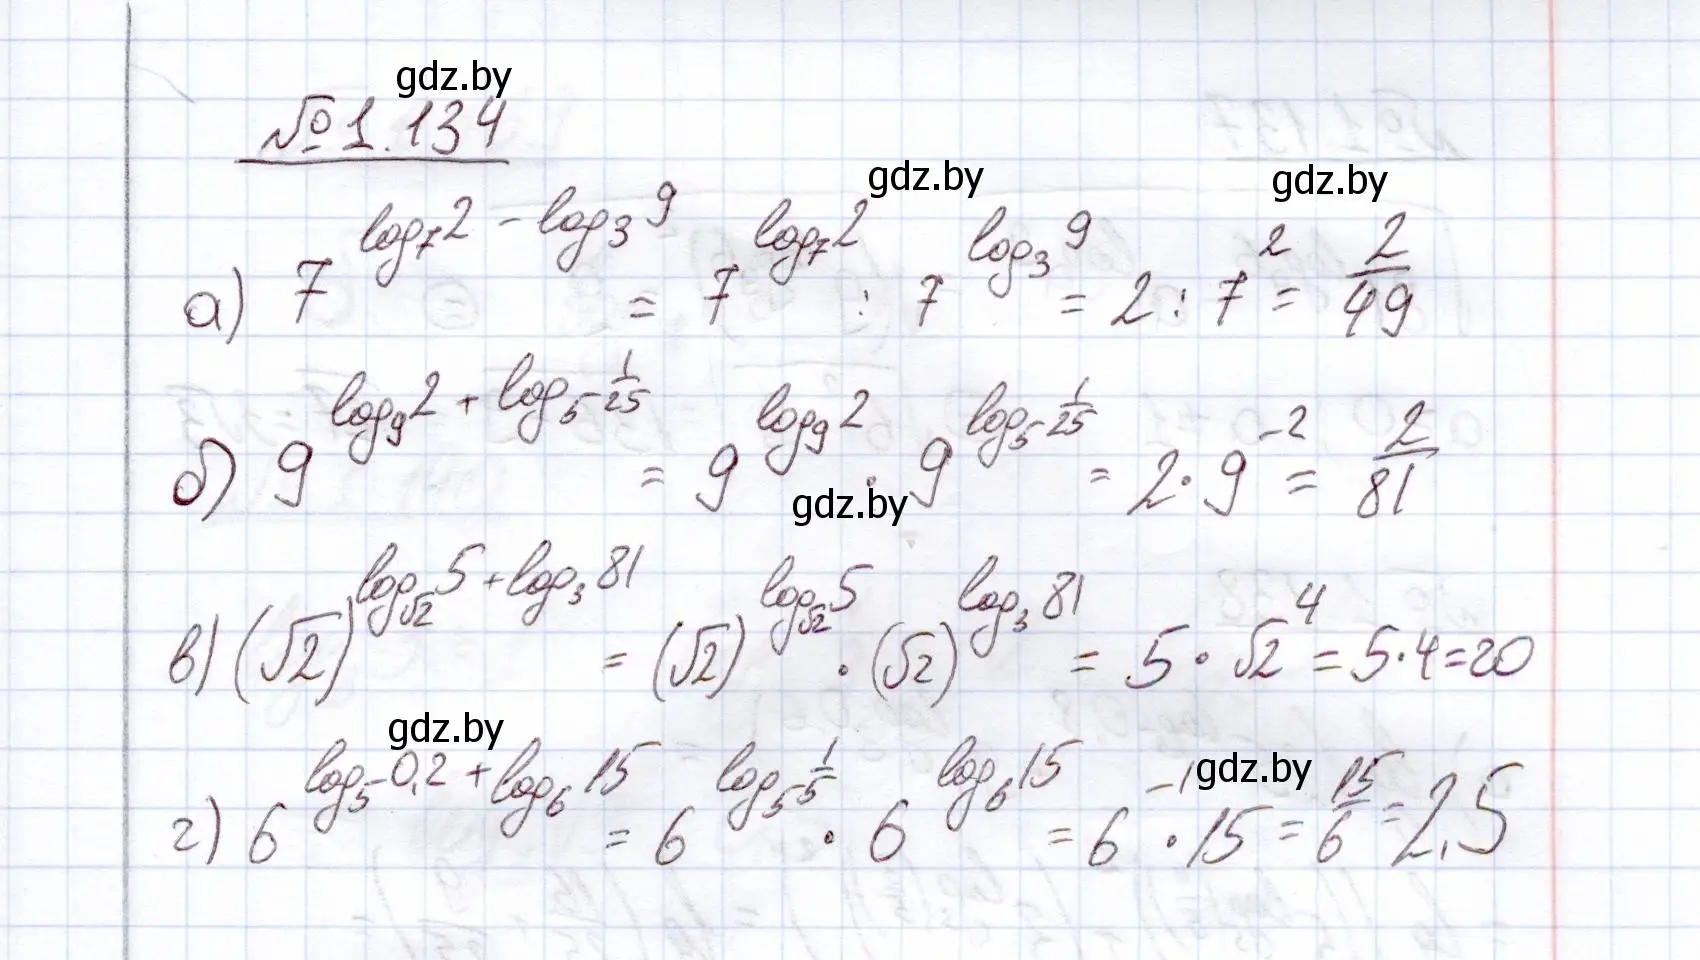 gdz.by
№1.134
gdz.by gdz.by
а) 7^(log₇2 − log₃9) = 7^(log₇2) : 7^(log₃9) = 2 : 7² = 2/49
б) 9^(log₉2 + log₅1/25) = 9^(log₉2) · 9^(log₅1/25) = 2 · 9⁻² = 2/81
gdz.by
в) (√2)^(log_√2 5 + log₃81) = (√2)^(log_√2 5) · (√2)^(log₃81) = 5 · √2⁴ = 5·4=20
gdz.by gdz.by
г) 6^(log₅0,2 + log₆15) = 6^(log₅1/5) · 6^(log₆15) = 6⁻¹ · 15 = 15/6 = 2,5